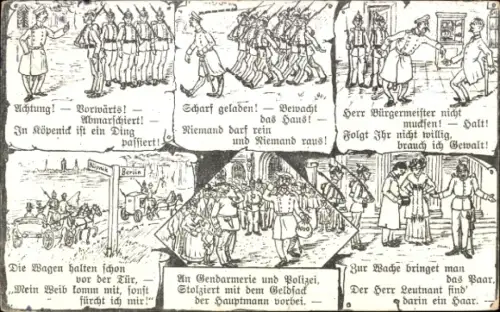 Achtung! — Vorwärts! —
Abmarschiert! —
In Köpenick ist ein Ding
passiert!
Scharf geladen! — Bewacht
das Haus! —
Niemand darf rein
und Niemand raus!
Herr Bürgermeister nicht
mucksen! — Halt!
Folgt Ihr nicht willig,
brauch ich Gewalt!
Berlin
Die Wagen halten schon
vor der Tür, —
„Mein Weib komm mit, sonst
fürcht ich mir!"
An Gendarmerie und Polizei,
Stolziert mit dem Geldsack
der Hauptmann vorbei. —
Zur Wache bringet man
das Paar,
Der Herr Leutnant find'
darin ein Haar. —